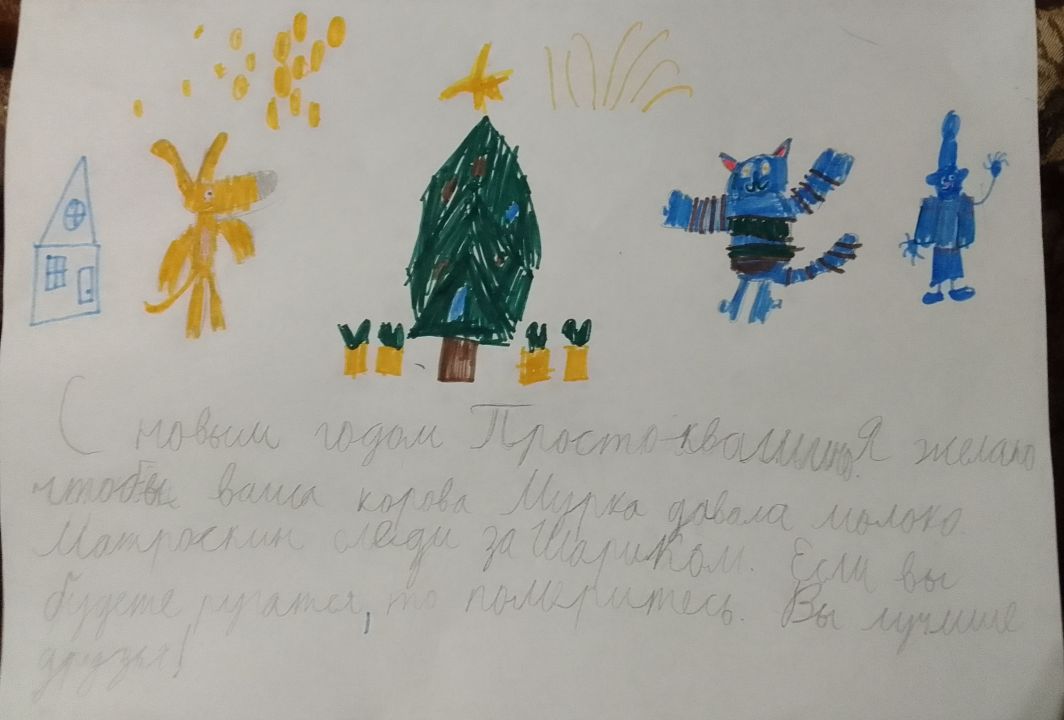 С новым годом Простоквашино. Я желаю
чтобы ваша корова Мурка довала молоко.
Матроскин следи за Шариком. Если вы
будете ругатся, то померитесь. Вы лучшие
друзья!